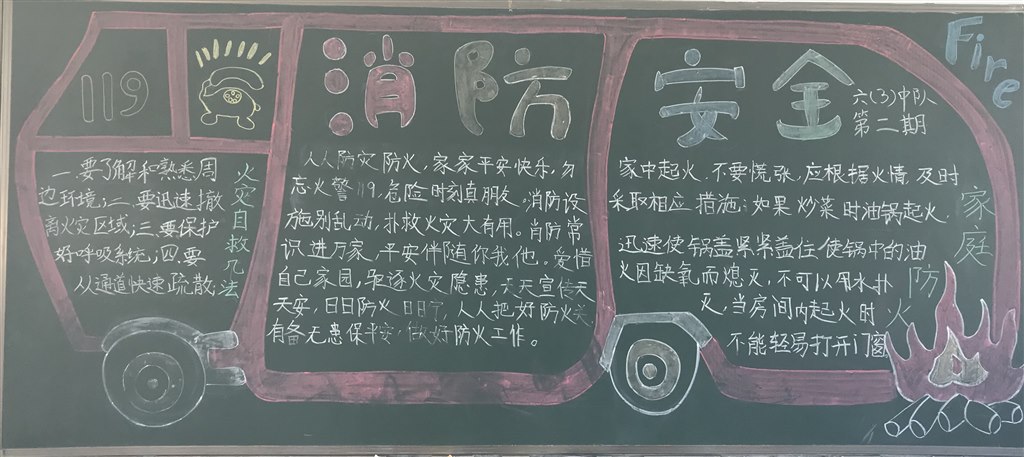 119
消防安全
六(3)中队
第二期
Fire
一.要了解和熟悉周
边环境;二.要迅速撤
离火灾区域;三.要保护
好呼吸系统;四.要
从通道快速疏散;
火灾自救几法
人人防灾防火,家家平安快乐,勿
忘火警119,危险时刻真朋友。消防设
施别乱动,扑救火灾大有用。消防常
识进万家,平安伴随你我他。爱惜
自己家园,驱逐火灾隐患,天天宣传天
天安,日日防火日日宁,人人把好防火关
有备无患保平安,做好防火工作。
家中起火,不要慌张,应根据火情及时
采取相应措施:如果炒菜时油锅起火.
迅速使锅盖紧紧盖住,使锅中的油
火因缺氧而熄灭,不可以用水扑
灭,当房间内起火时
不能轻易打开门窗
家庭防火